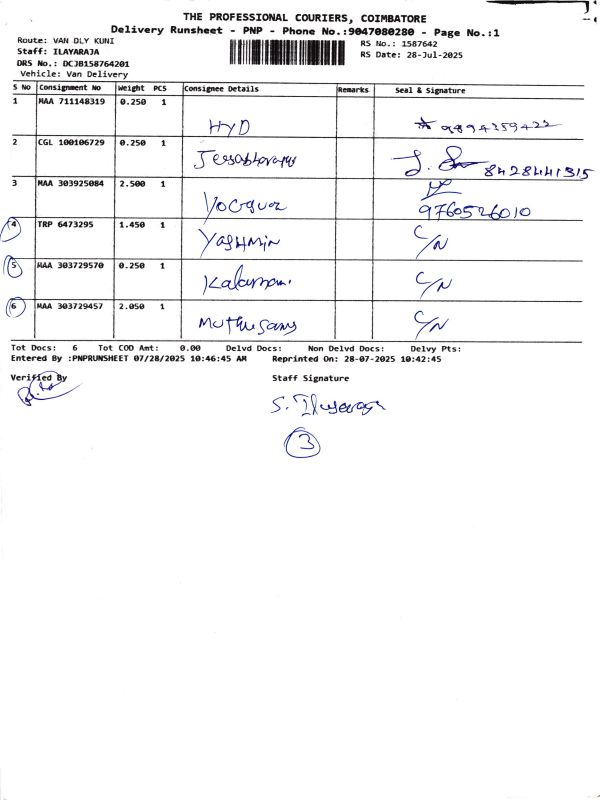 THE PROFESSIONAL COURIERS, COIMBATORE
Delivery Runsheet - PNP - Phone No.:9047080280 - Page No.:1
Route: VAN DLY KUNI
Staff: ILAYARAJA
DRS No.: DCJB158764201
Vehicle: Van Delivery
RS No.: 1587642
RS Date: 28-Jul-2025
S No Consignment No Weight PCS Consignee Details Remarks Seal & Signature
1 MAA 711148319 0.250 1
HYD 9894259422
2 CGL 100106729 0.250 1
8428441315
3 MAA 303925084 2.500 1
9760526010
4 TRP 6473295 1.450 1
YASHMIN C/N
5 MAA 303729570 0.250 1
C/N
6 MAA 303729457 2.050 1
MUTHUSAMY C/N
Tot Docs: 6 Tot COD Amt: 0.00 Delvd Docs: Non Delvd Docs: Delvy Pts:
Entered By :PNPRUNSHEET 07/28/2025 10:46:45 AM Reprinted On: 28-07-2025 10:42:45
Verified By Staff Signature
S. Ilayaraja
3